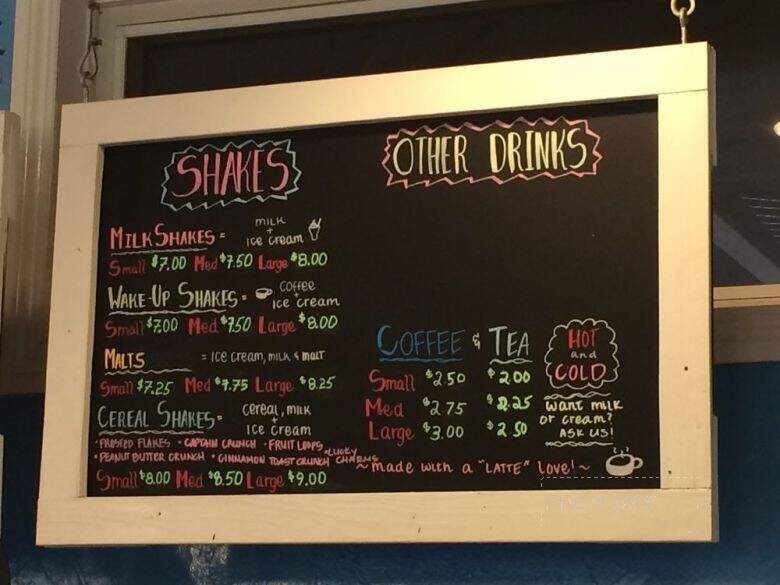 SHAKES
MILKSHAKES = MILK + ice cream
Small $7.00 Med $7.50 Large $8.00
WAKE-UP SHAKES = COFFEE + ice cream
Small $7.00 Med $7.50 Large $8.00
MALTS = ice cream, milk & malt
Small $7.25 Med $7.75 Large $8.25
CEREAL SHAKES = cereal, milk + ice cream
• FROSTED FLAKES - CAPTAIN CRUNCH • FRUIT LOOPS • LUCKY CHARMS
• PEANUT BUTTER CRUNCH • CINNAMON TOAST CRUNCH
Small $8.00 Med $8.50 Large $9.00
OTHER DRINKS
COFFEE & TEA
Small $2.50 $2.00
Med $2.75 $2.25
Large $3.00 $2.50
HOT
and
COLD
want milk
or cream?
ASK US!
~made with a "LATTE" Love!~